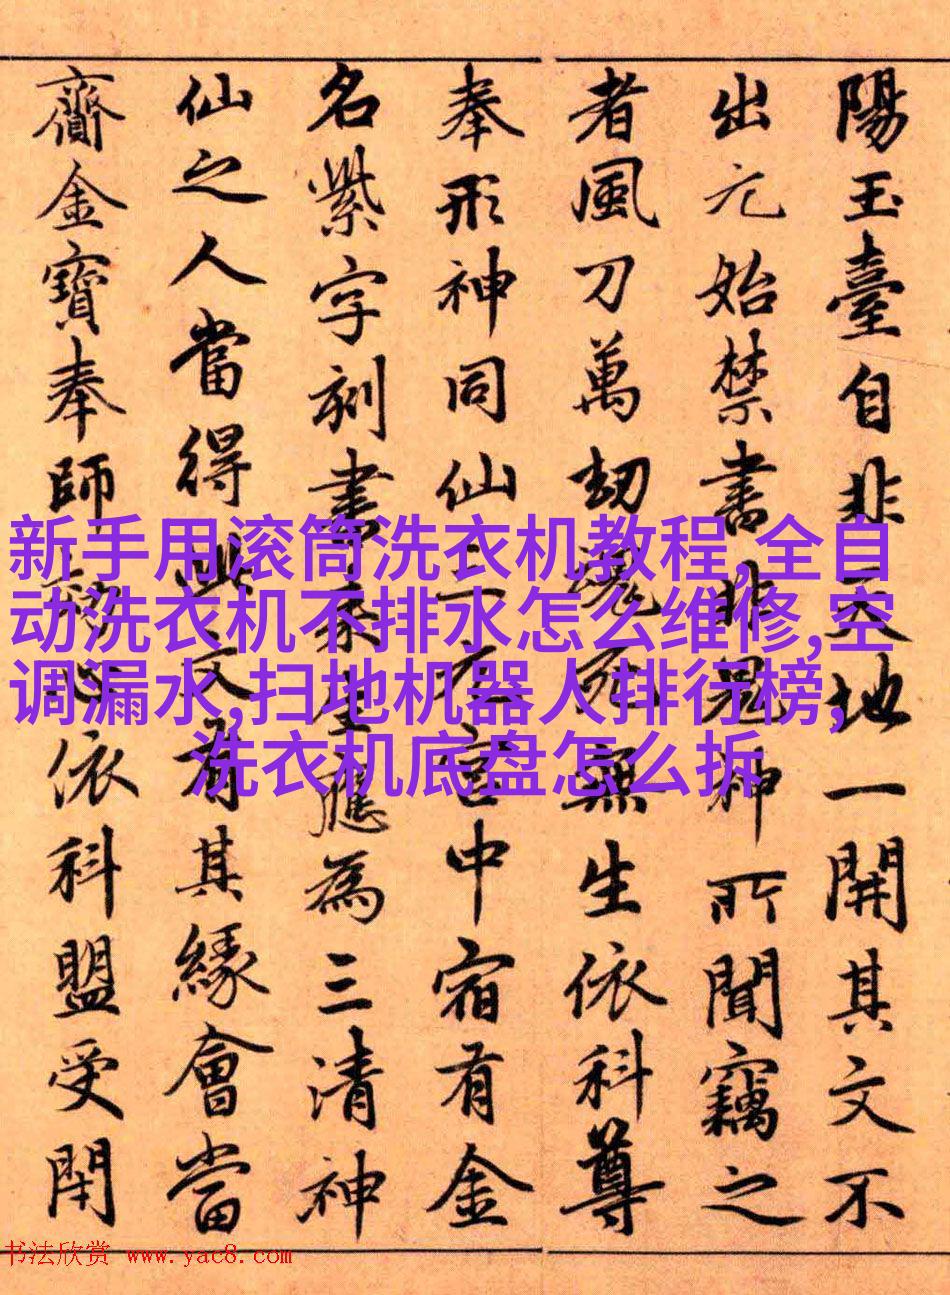 陽玉臺自非天地一開其文不
出元始禁書非鬼神所聞竊之
者風刀萬劫魂死無生依科尊
奉形神同仙上元宮中宿有金
名紫字刻書來生應為三清神
仙之人當得此文有其緣會當
齎金寶奉師効心依科盟受閇
新手用滚筒洗衣机教程,全自
动洗衣机不排水怎么维修,空
调漏水,扫地机器人排行榜,
洗衣机底盘怎么拆
书法欣赏 www.yac8.com